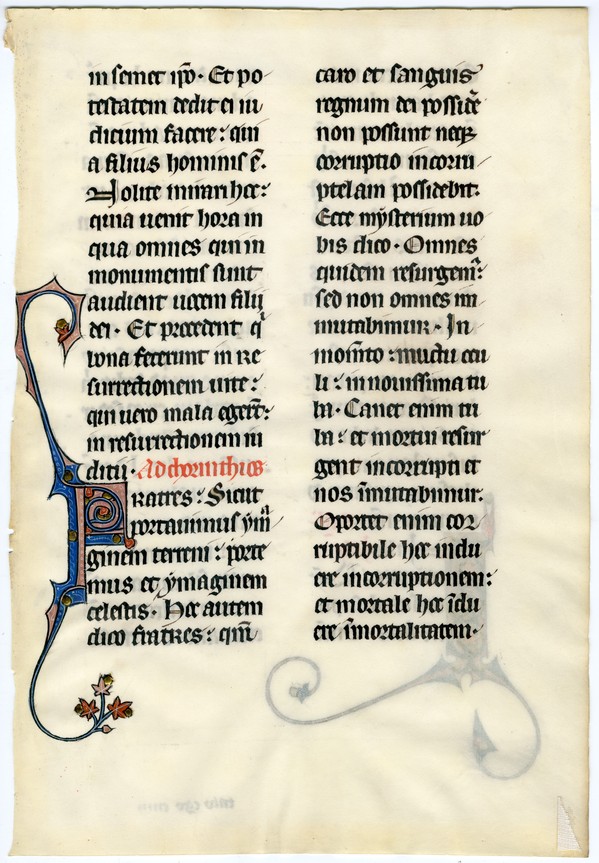 in semet ip̄o. Et po
testatem dedit ei iu
dicium facere: qui
a filius hominis ē.
Nolite mirari hoc:
quia uenit hora in
qua omnes qui in
monumentis sunt
audient uocem filij
dei. Et procedent q̇
bona fecerunt in re
surrectionem uite:
qui uero mala egerūt:
in resurrectionem iu
dicij. Ad chorinthios
Fratres: Sicut
portauimus ymā
ginem terreni: porte
mus et ymaginem
celestis. Hoc autem
dico fratres: qm̄
caro et sanguis
regnum dei possidē
non possunt neqꝫ
corruptio incorru
ptelam possidebit.
Ecce mysterium uo
bis dico. Omnes
quidem resurgem᷒:
sed non omnes im
mutabimur. In
momēto: in ictu ocu
li: in nouissima tu
ba. Canet enim tu
ba: et mortui resur
gent incorrupti et
nos īmutabimur.
Oportet enim cor
ruptibile hoc indu
ere incorruptionem:
et mortale hoc īdu
ere īmortalitatem.